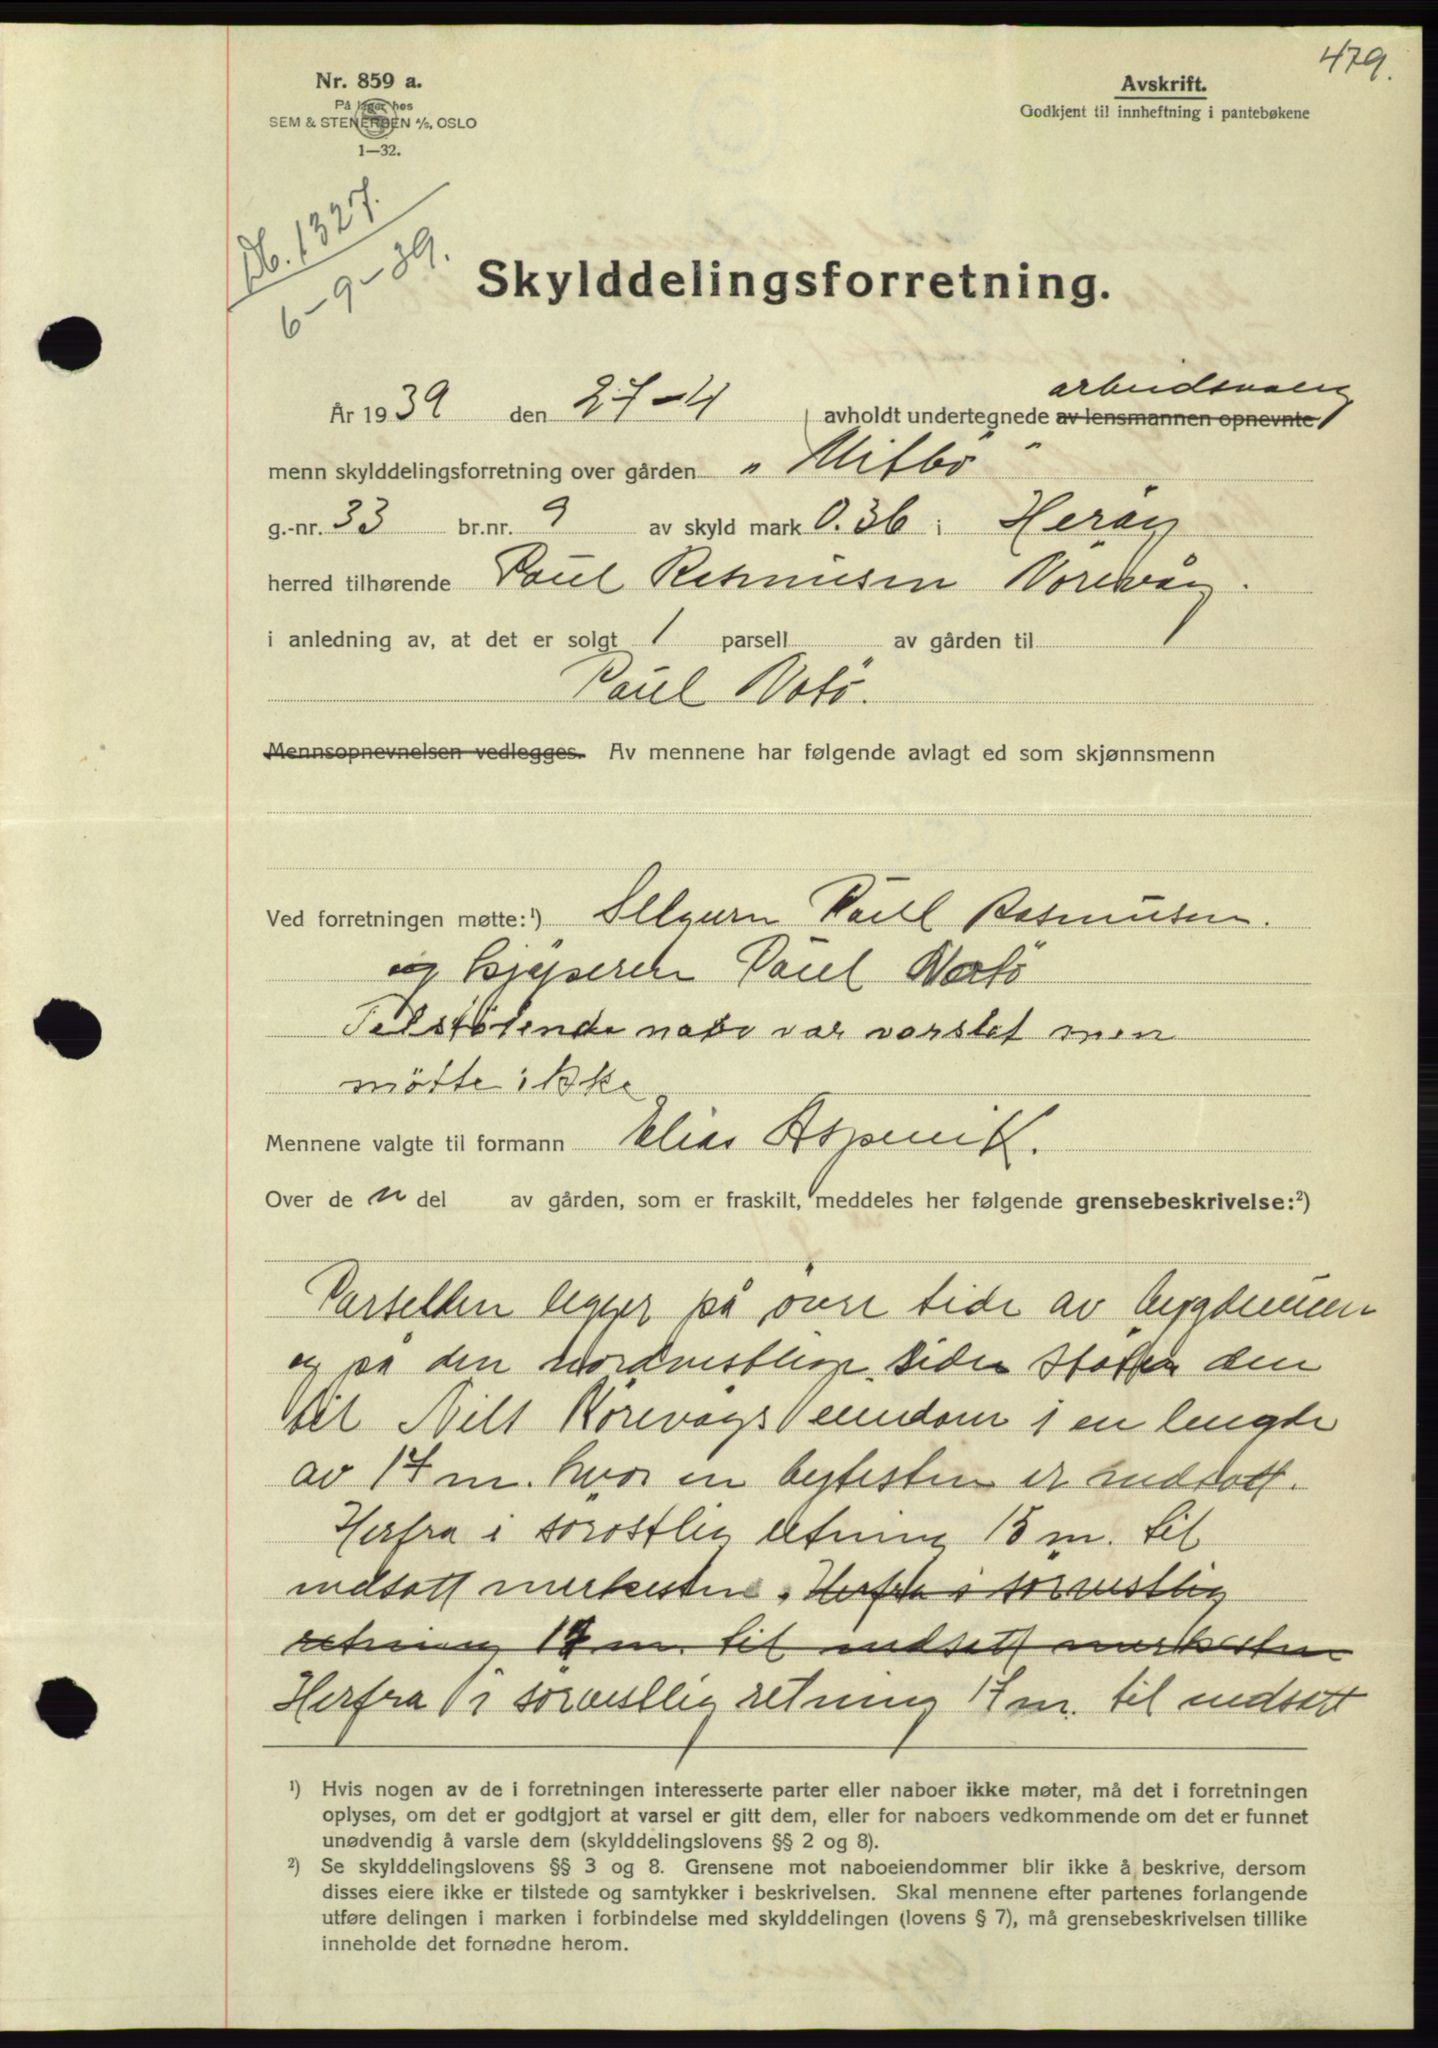 479.
Nr. 859 a.
På lager hos
SEM & STENERSEN A/S, OSLO
1—32.
Avskrift.
Godkjent til innheftning i pantebøkene
Db. 1327.
6-9-39.
Skylddelingsforretning.
År 1939 den 27-4 avholdt undertegnede av lensmannen opnevnte
menn skylddelingsforretning over gården "
g.-nr. 33 br.nr. 9 av skyld mark 0.36 i Herøy
herred tilhørende Paul Rasmusen
i anledning av, at det er solgt 1 parsell av gården til
Paul
Mennsopnevnelsen vedlegges. Av mennene har følgende avlagt ed som skjønnsmenn
Ved forretningen møtte:¹) Selgern Paul Rasmusen.
og kjøperen Paul
Tilstøtende nabo var varslet men
møtte ikke
Mennene valgte til formann Elias Aspevik.
Over de n del av gården, som er fraskilt, meddeles her følgende grensebeskrivelse:²)
Parsellen legger på øvre side av
og på den nordvestlige side støter den
til Nils Kørevågs eiendom i en lengde
av 17 m. hvor en bytesten er nedsatt.
Herfra i sørøstlig retning 15 m. til
nedsatt merkesten. Herfra i sørvestlig
retning 17 m. til nedsatt merkesten
Herfra i sørvestlig retning 17 m. til nedsatt
¹) Hvis nogen av de i forretningen interesserte parter eller naboer ikke møter, må det i forretningen
oplyses, om det er godtgjort at varsel er gitt dem, eller for naboers vedkommende om det er funnet
unødvendig å varsle dem (skylddelingslovens §§ 2 og 8).
²) Se skylddelingslovens §§ 3 og 8. Grensene mot naboeiendommer blir ikke å beskrive, dersom
disses eiere ikke er tilstede og samtykker i beskrivelsen. Skal mennene efter partenes forlangende
utføre delingen i marken i forbindelse med skylddelingen (lovens § 7), må grensebeskrivelsen tillike
inneholde det fornødne herom.